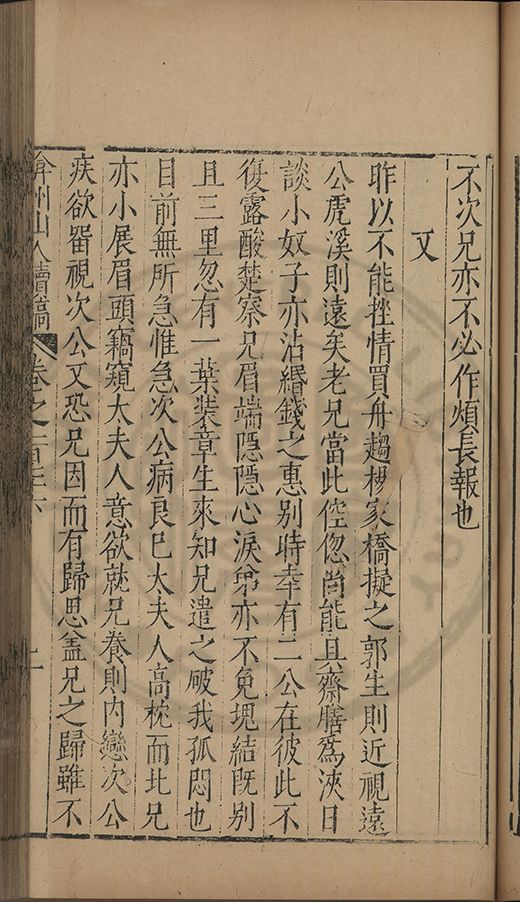 不次兄亦不必作煩長報也
又
昨以不能挫情買舟趨楊家橋擬之郭生則近視遠
公虎溪則遠矣老兄當此倥偬尚能具齋膳爲浹日
談小奴子亦沾緡錢之惠别時幸有二公在彼此不
復露酸楚寮兄眉端隱隱心淚弟亦不免塊結既别
且三里忽有一葉裝章生來知兄遣之破我孤悶也
目前無所急惟急次公病良巳大夫人高枕而北兄
亦小展眉頭竊窺大夫人意欲就兄養則内戀次公
疾欲畱視次公又恐兄因而有歸思盖兄之歸雖不
弇州山人續稿 卷之一百七十六